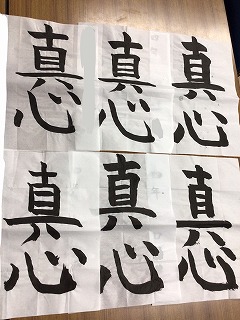 真心
真心
真心
真心
真心
真心